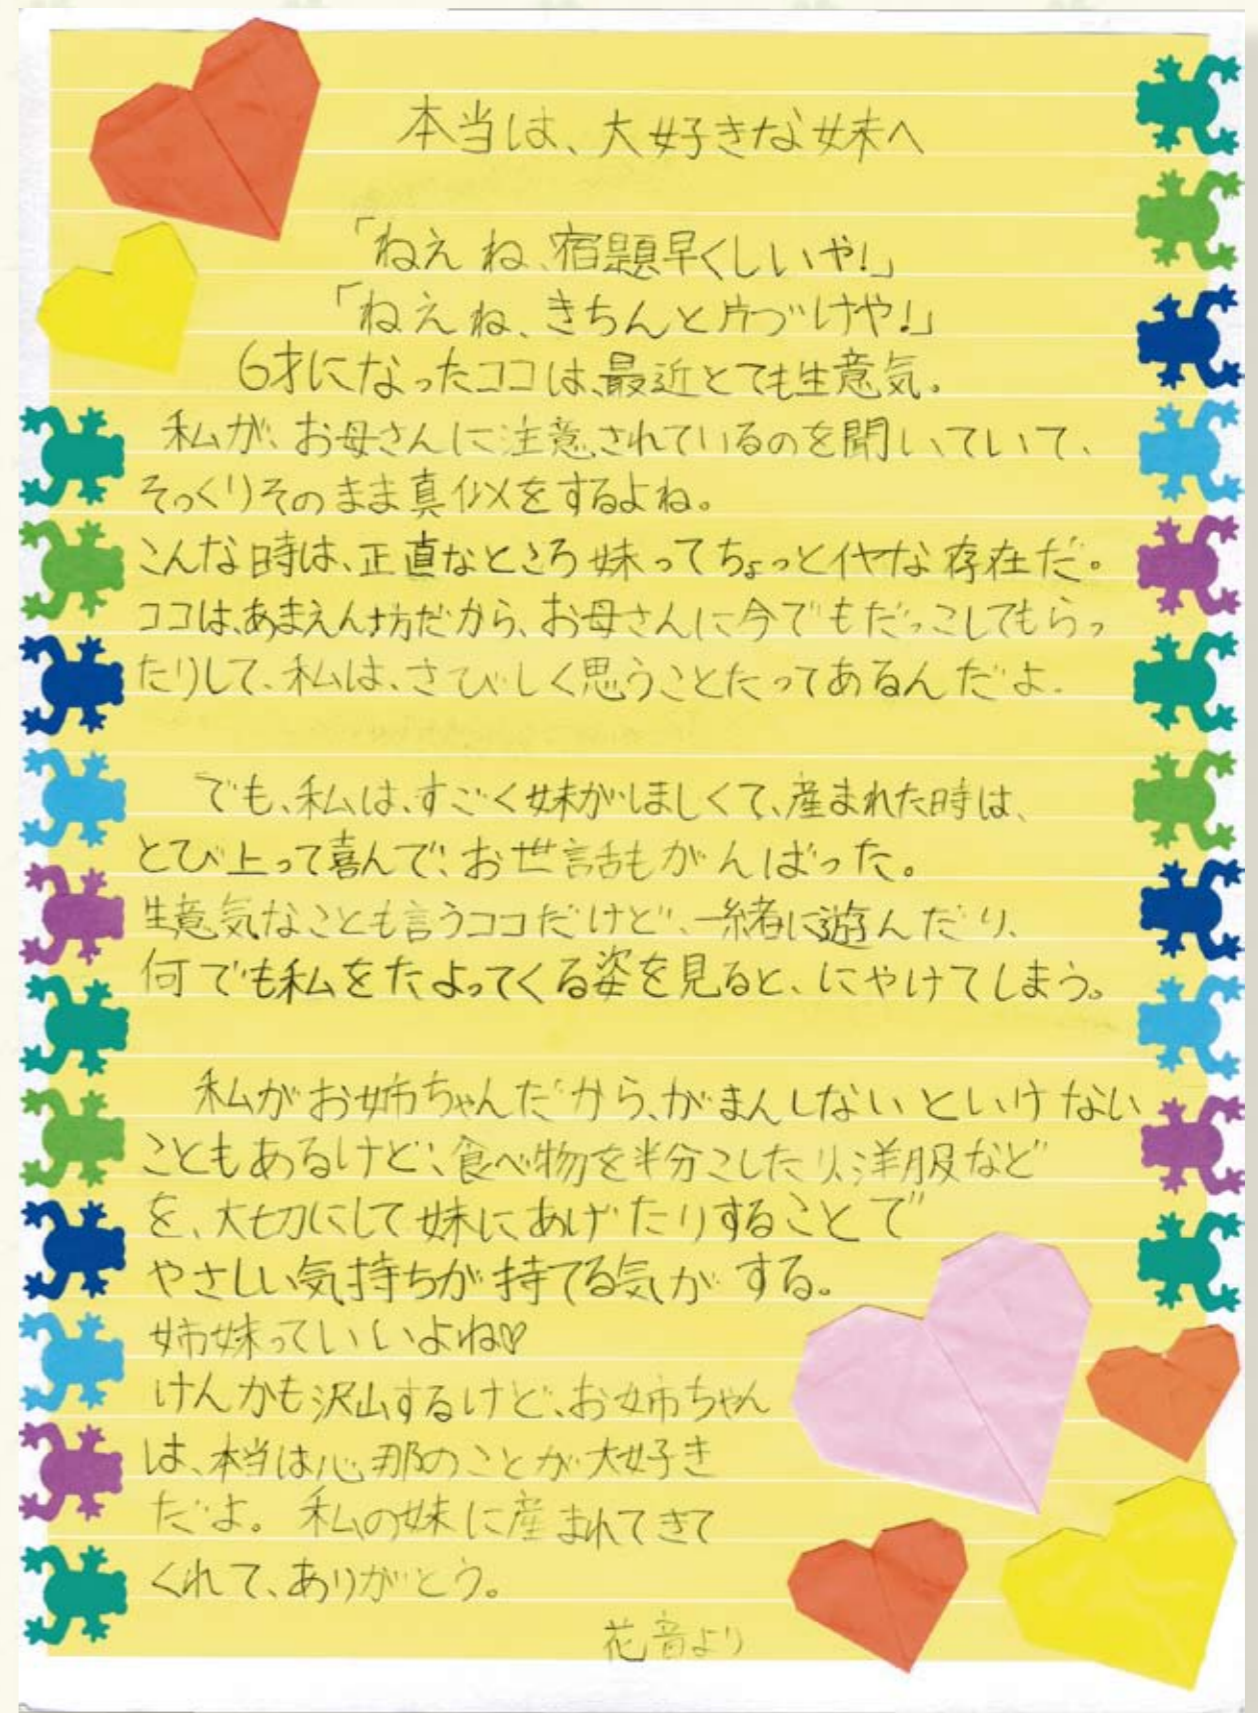 本当は、大好きな妹へ
「ねえね、宿題早くしいや!」
「ねえね、きちんと片づけや!」
6才になったココは、最近とても生意気。
私が、お母さんに注意されているのを聞いていて、
そっくりそのまま真似をするよね。
こんな時は、正直なところ妹ってちょっとイヤな存在だ。
ココは、あまえん坊だから、お母さんに今でもだっこしてもらっ
たりして、私は、さびしく思うことたってあるんだよ.
でも、私は、すごく妹がほしくて、産まれた時は、
とび上って喜んで、お世話もがんばった。
生意気なことも言うココだけど、一緒に遊んだり、
何でも私をたよってくる姿を見ると、にやけてしまう。
私がお姉ちゃんだから、がまんしないといけない
こともあるけど、食べ物を半分こしたり、洋服など
を、大切にして妹にあげたりすることで
やさしい気持ちが持てる気がする。
姉妹っていいよね♡
けんかも沢山するけど、お姉ちゃん
は、本当は心那のことが大好き
だよ。私の妹に産まれてきて
くれて、ありがとう。
花音より